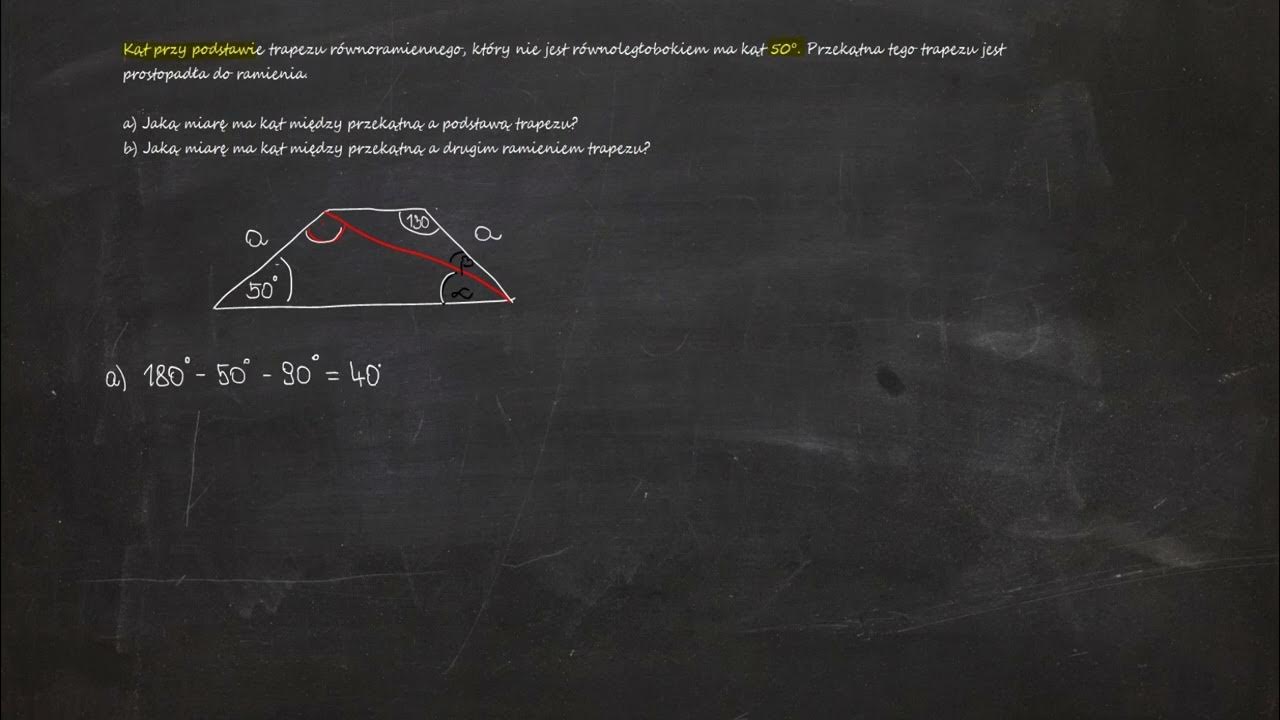 Kąt przy podstawie trapezu równoramiennego, który nie jest równoległobokiem ma kąt 50°. Przekątna tego trapezu jest
prostopadła do ramienia.
a) Jaką miarę ma kąt między przekątną a podstawą trapezu?
b) Jaką miarę ma kąt między przekątną a drugim ramieniem trapezu?
130
a
a
β
50°
α
a) 180° - 50° - 90° = 40°